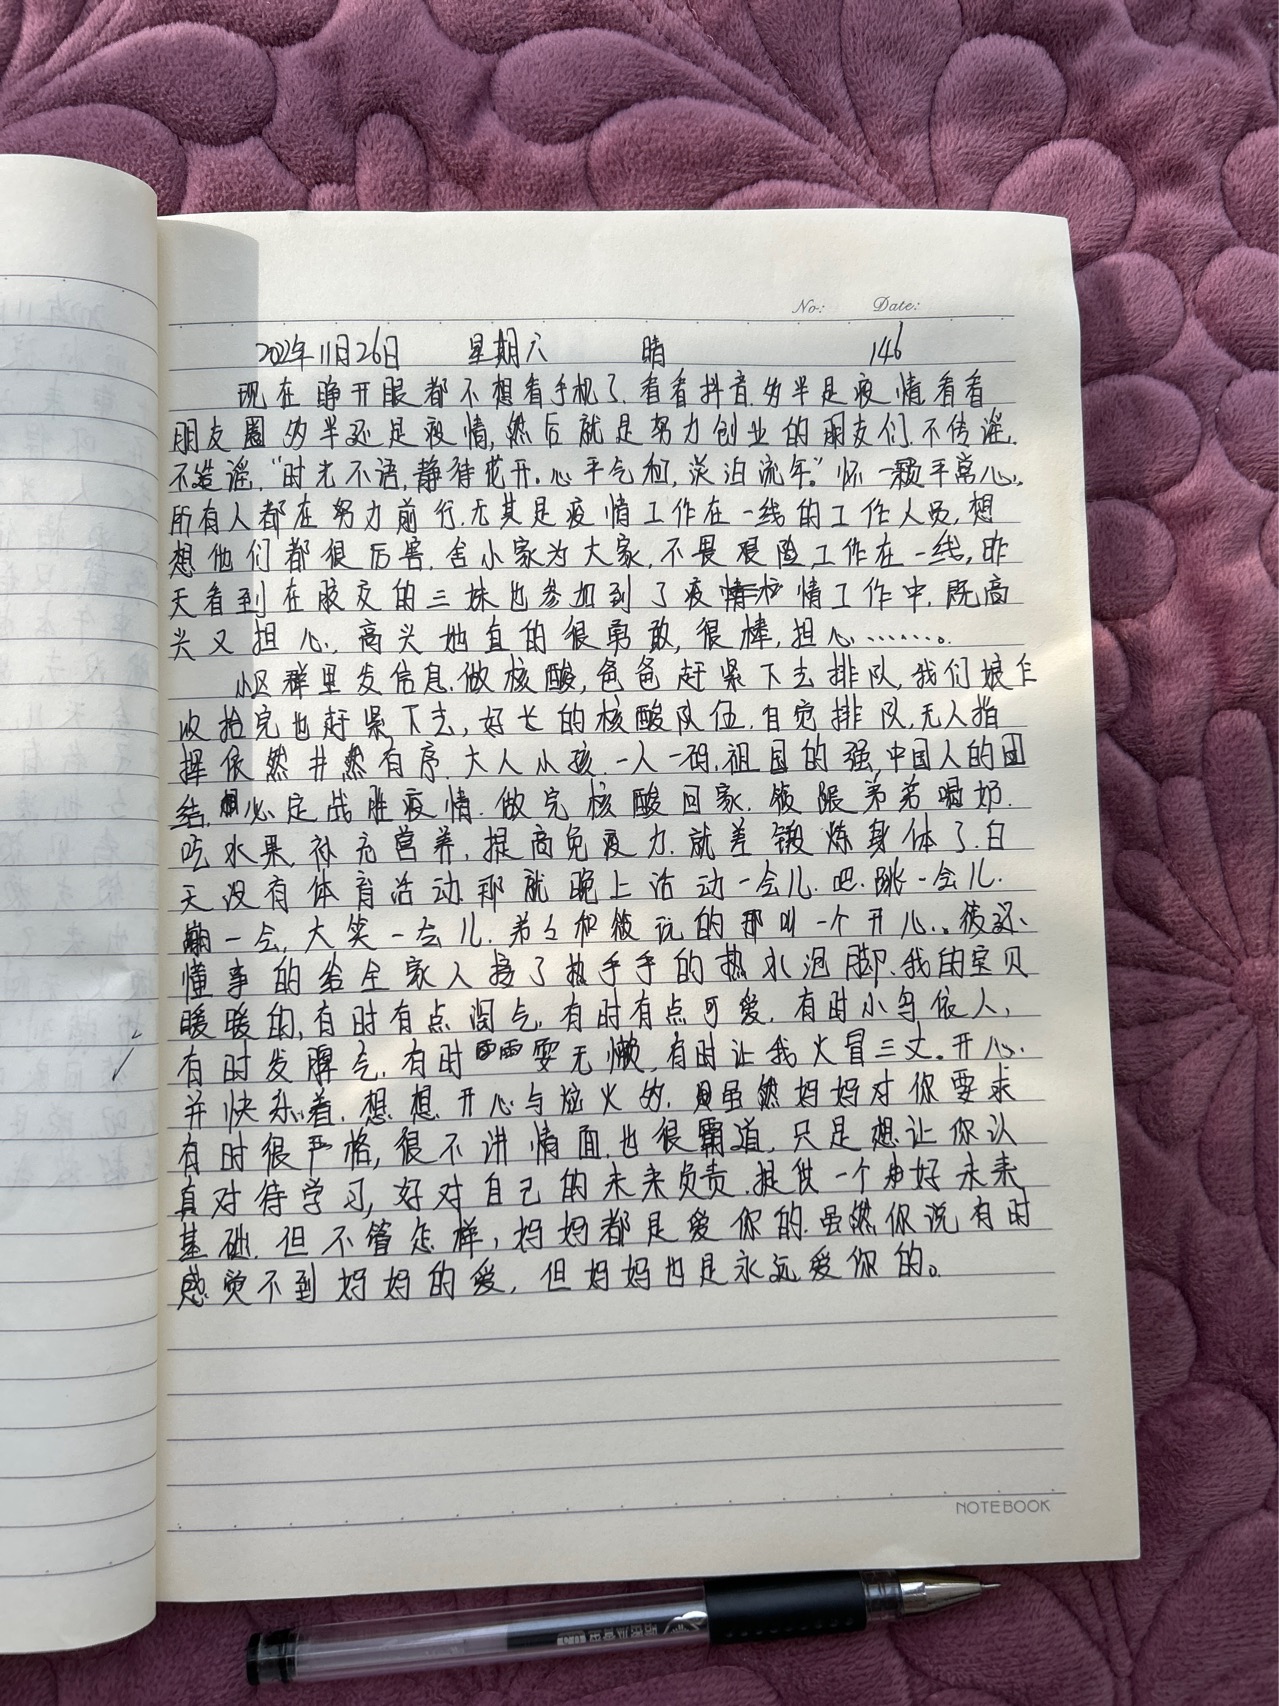 No: Date:
2022年11月26日 星期六 晴 146
现在睁开眼都不想看手机了.看看抖音.多半是疫情看看
朋友圈多半还是疫情,然后就是努力创业的朋友们.不传谣.
不造谣."时光不语,静待花开。心平气和,淡泊流年。"怀一颗平常心.
所有人都在努力前行.尤其是疫情工作在一线的工作人员,想
想他们都很厉害.舍小家为大家,不畏艰险工作在一线,昨
天看到在胶交的三妹也参加到了疫情工作中,既高
兴又担心,高兴她真的很勇敢,很棒,担心.......。
小区群里发信息.做核酸,爸爸赶紧下去排队,我们娘
收拾完也赶紧下去,好长的核酸队伍.自觉排队,无人指
挥依然井然有序.大人小孩.一人一码.祖国的强,中国人的团
结.必定战胜疫情.做完核酸回家.弟弟喝奶.
吃水果,补充营养,提高免疫力.就差锻炼身体了.白
天没有体育活动.那就晚上活动一会儿.吧.跳一会儿.
一会,大笑一会儿.弟弟和筱玩的那叫一个开心。筱还
懂事的给全家人接了热乎乎的热水泡脚.我的宝贝
暖暖的,有时有点阔气.有时有点可爱.有时小鸟依人,
有时发脾气.有时耍无懒,有时让我火冒三丈。开心.
并快乐着.想想开心与恼火的.虽然妈妈对你要求
有时很严格,很不讲情面.也很霸道,只是想让你认
真对待学习,好对自己的未来负责.提供一个好未来
基础.但不管怎样,妈妈都是爱你的.虽然你说有时
感觉不到妈妈的爱,但妈妈也是永远爱你的。
NOTEBOOK